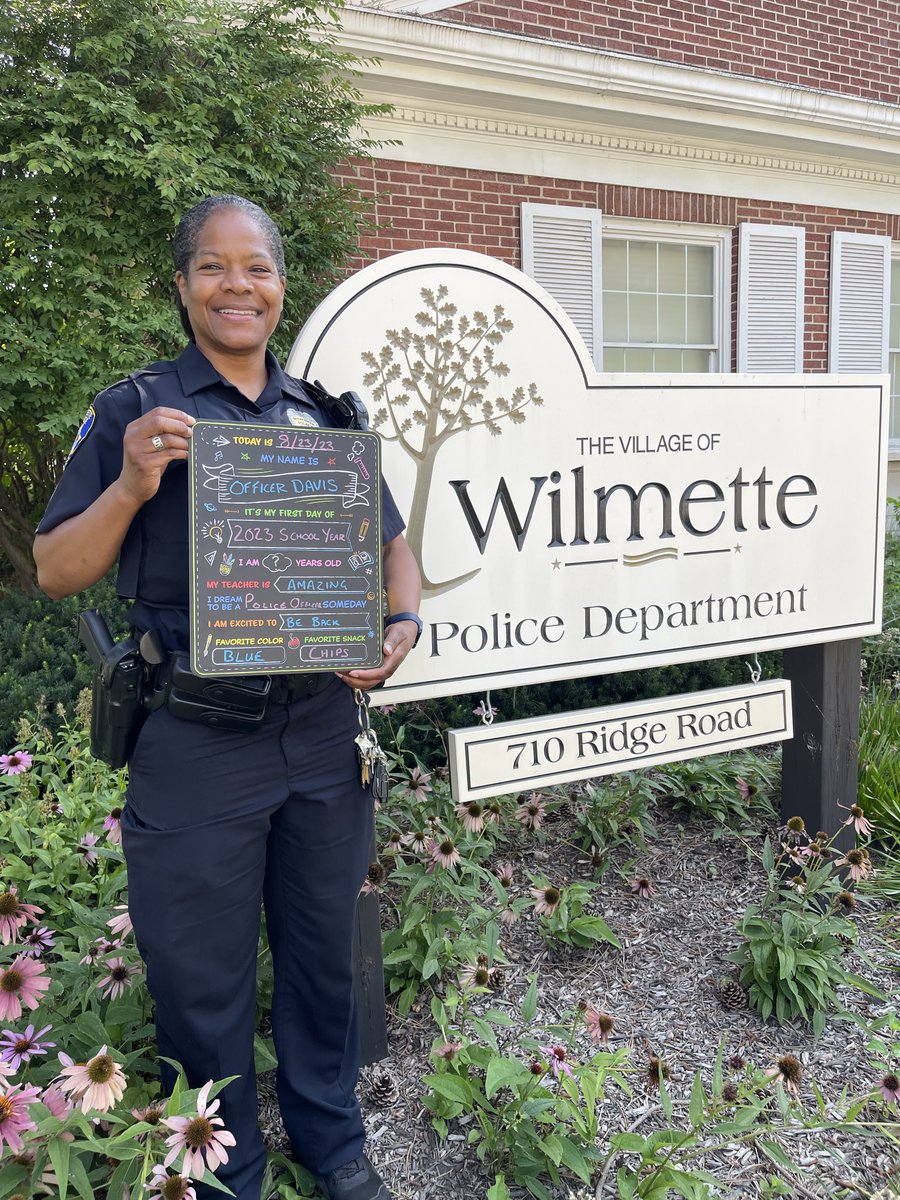 TODAY IS 8/23/23
MY NAME IS
OFFICER DAVIS
IT'S MY FIRST DAY OF
2023 SCHOOL YEAR
I AM ? YEARS OLD
MY TEACHER IS AMAZING
I DREAM TO BE A POLICE OFFICER SOMEDAY
I AM EXCITED TO BE BACK
FAVORITE COLOR FAVORITE SNACK
BLUE CHIPS
THE VILLAGE OF
Wilmette
Police Department
710 Ridge Road